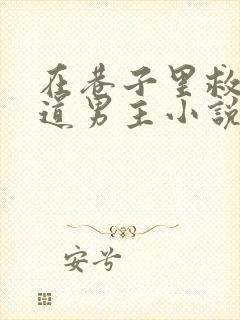 在巷子里救
道男主小说
安兮